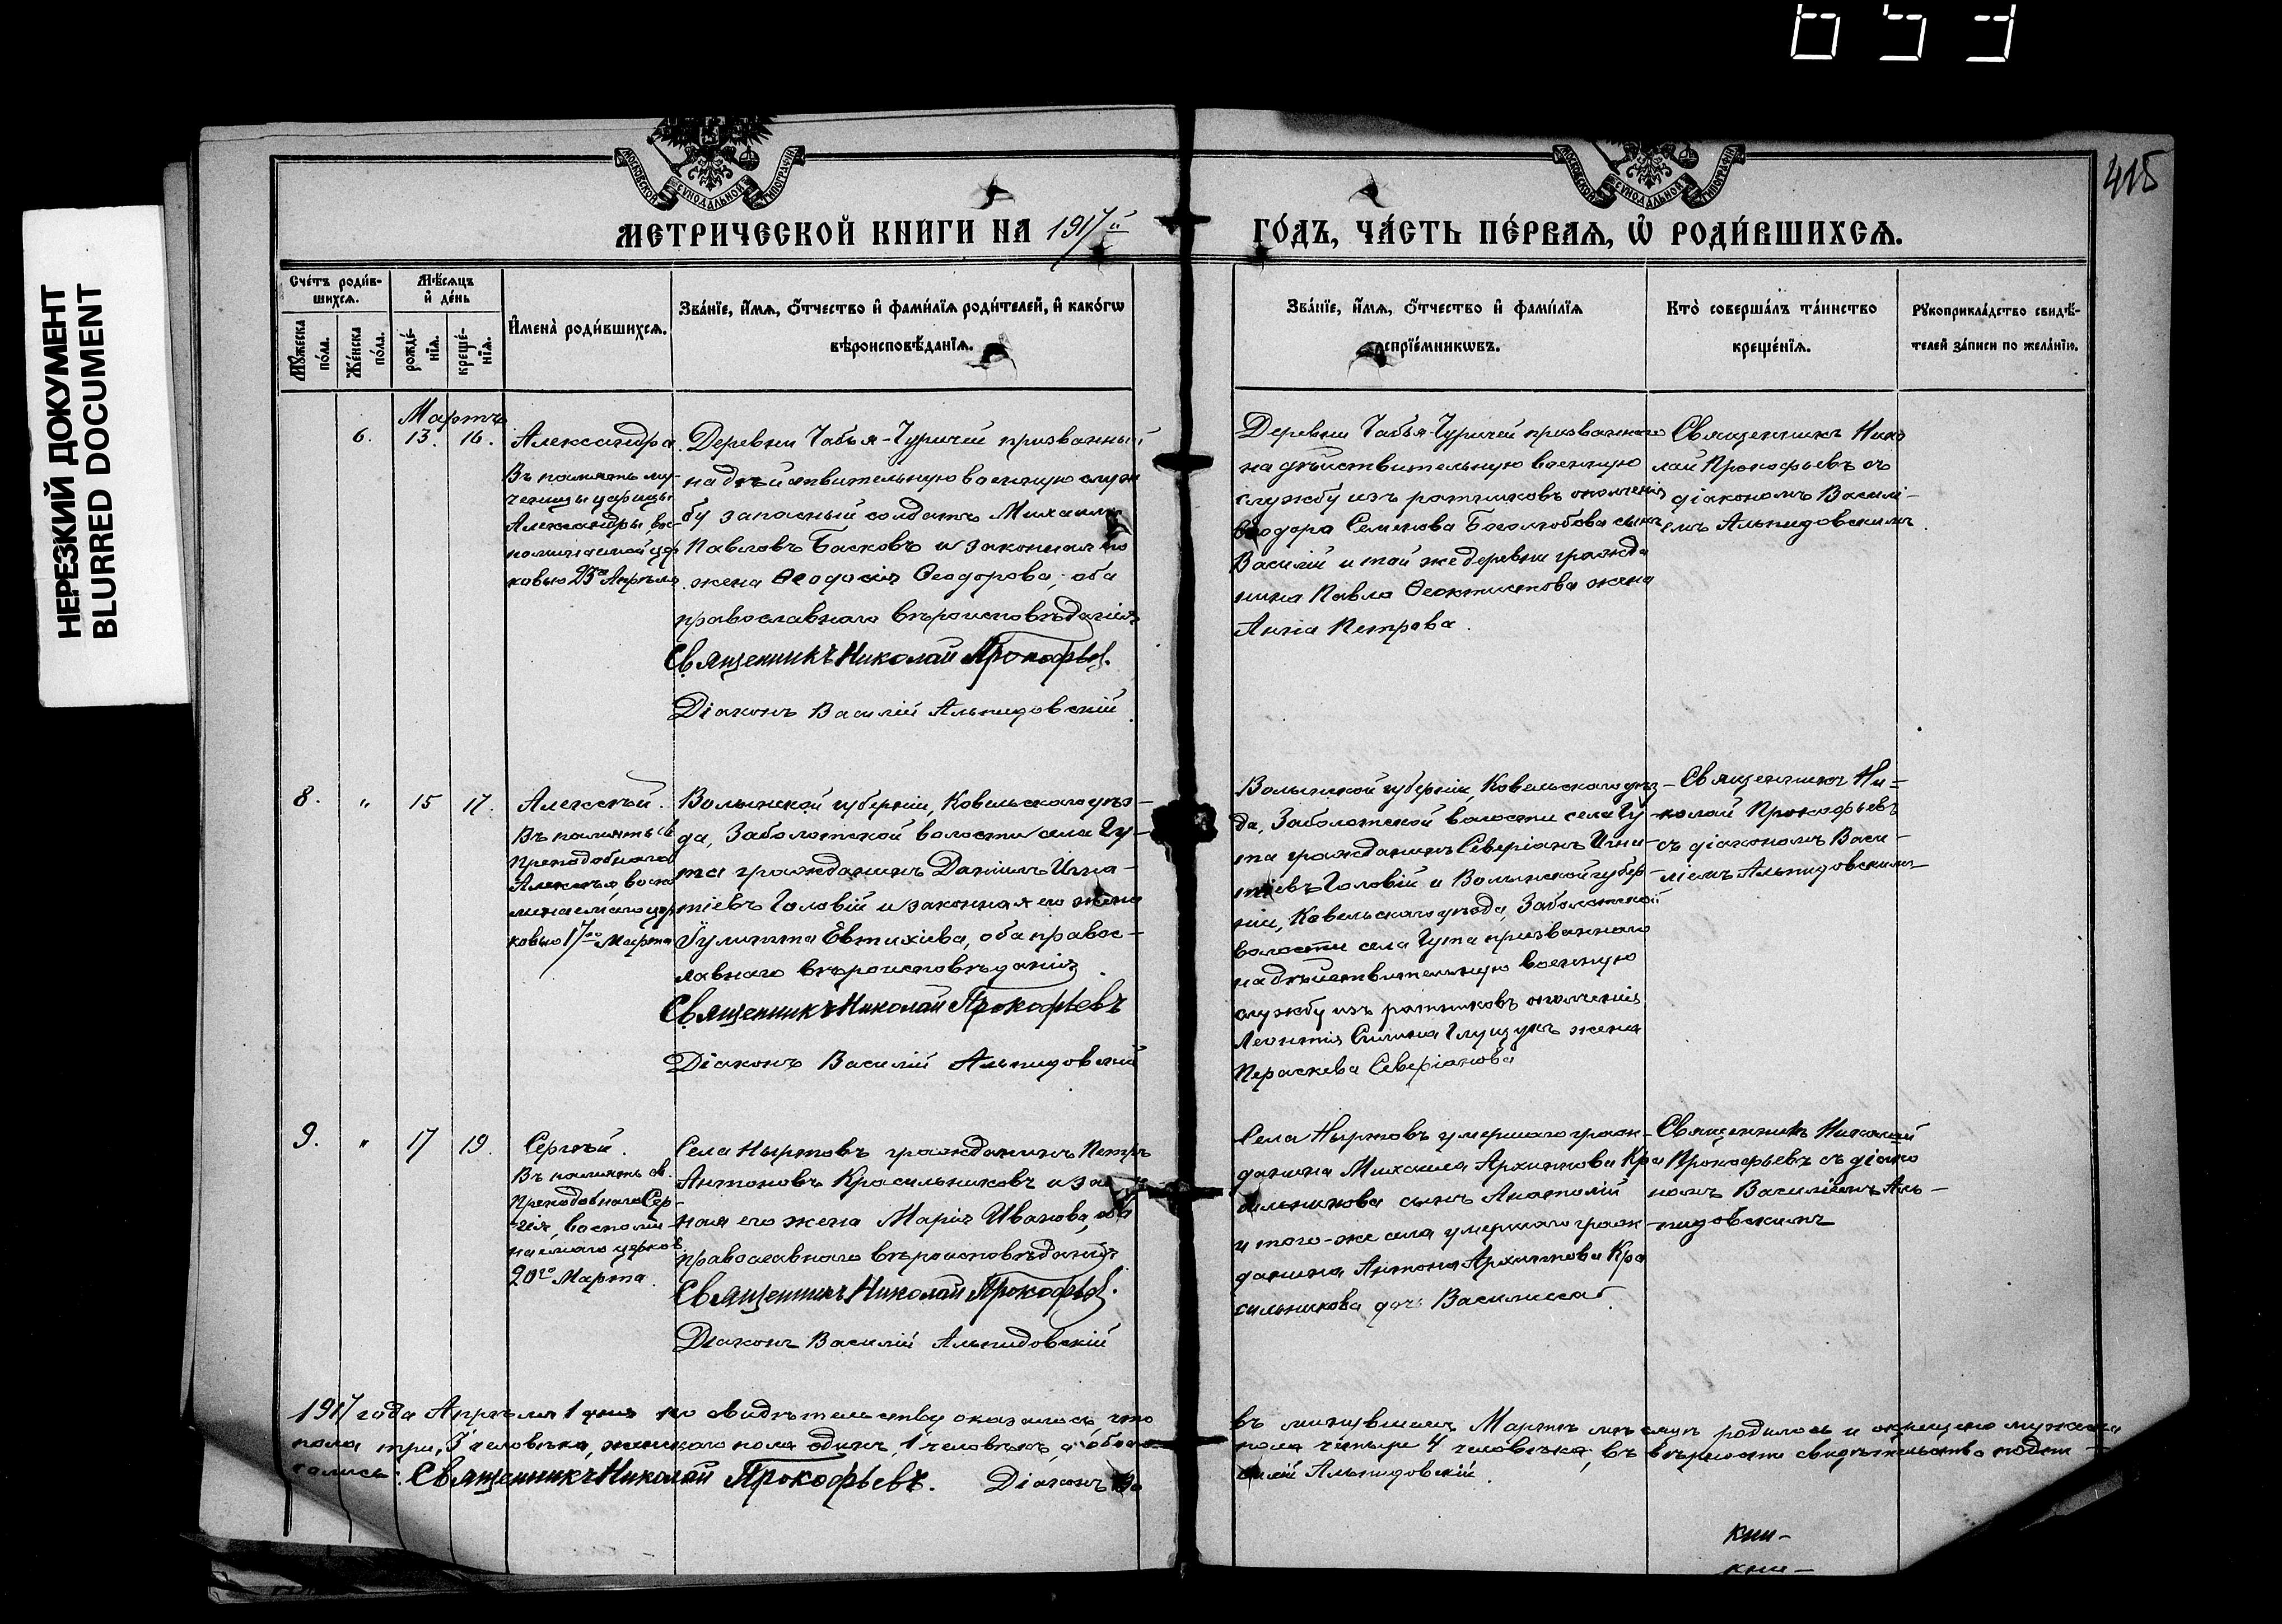 НЕРЕЗКИЙ ДОКУМЕНТ
BLURRED DOCUMENT
415
МОСКОВСКОЙ СѴНОДАЛЬНОЙ ТИПОГРАФІИ
МОСКОВСКОЙ СѴНОДАЛЬНОЙ ТИПОГРАФІИ
МЕТРИЧЕСКОЙ КНИГИ НА 1917й
ГОДЪ, ЧАСТЬ ПЕРВАЯ, Ѡ РОДИВШИХСЯ.
Счетъ родив-
шихся.
Мужеска
пола.
Женска
пола.
Мѣсяцъ
и день
рожде-
нія.
креще-
нія.
Имена родившихся.
Званіе, имя, отчество и фамилія родителей, и какогѡ
вѣроисповѣданія.
Званіе, имя, отчество и фамилія
воспріемникѡвъ.
Кто совершалъ таинство
крещенія.
Рукоприкладство свидѣ-
телей записи по желанію.
Мартъ
6. 13. 16.
Александра.
Въ память му-
ченицы царицы
Александры вос-
поминаемой цер
ковью 23го Апрѣля
Деревни Чабья-Чурчей призванный
на дѣйствительную военную служ
бу запасный солдатъ Михаилъ
Павловъ Басковъ и законная его
жена Ѳеодосія Ѳеодорова, оба
православнаго вѣроисповѣданія
Священникъ Николай Прокофьев.
Діаконъ Василій Альпидовскій
Деревни Чабья-Чурчей призваннаго
на дѣйствительную военную
службу изъ ратниковъ ополченія
Ѳеодора Семенова Боголюбова сынъ
Василій и той же деревни гражда
нина Павла Ѳеоктистова жена
Анна Петрова.
Священникъ Нико
лай Прокофьевъ съ
діакономъ Василі-
емъ Альпидовскимъ.
8. " 15 17.
Алексѣй.
Въ память св
Преподобнаго
Алексѣя, воспо
минаемаго цер
ковью 17го Марта
Волынской губерніи, Ковельскаго уѣз-
да, Заболотской волости села Гу-
та гражданинъ Даніилъ Игна-
тіевъ Головій и законная его жена
Гулитта Евтихіева, оба правос-
лавнаго вѣроисповѣданія.
Священникъ Николай Прокофьевъ
Діаконъ Василій Альпидовскій
Волынской губерніи, Ковельскаго уѣз-
да, Заболотской волости села Гу-
та гражданинъ Северіанъ Игна-
тіевъ Головій и Волынской губер-
ніи, Ковельскаго уѣзда, Заболотской
волости села Гута призваннаго
на дѣйствительную военную
службу изъ ратниковъ ополченія
Леонтія Глущукъ жена
Параскева Северіанова
Священникъ Ни-
колай Прокофьевъ
съ діакономъ Васи-
ліемъ Альпидовскимъ
9. " 17 19.
Сергѣй.
Въ память св.
Преподобнаго Сер-
гія, воспоми-
наемаго церков
20го Марта.
Села Ныртовъ гражданинъ Петръ
Антоновъ Красильниковъ и за
ная его жена Марія Иванова, оба
православнаго вѣроисповѣданія
Священникъ Николай Прокофьев.
Діаконъ Василій Альпидовскій
Села Ныртовъ умершаго граж-
данина Михаила Архиппова Кра
сильникова сынъ Анатолій
и того-же села умершаго граж-
данина Антона Архиппова Кра
сильникова дочь Василисса.
Священникъ Николай
Прокофьевъ съ діако
номъ Василіемъ Аль-
пидовскимъ
1917 года Апрѣля 1 дня по свидѣтельству оказалось, что
въ минувшемъ Мартѣ мѣсяцѣ родилось и окрещено мужеска
пола три, 3 человѣка, женскаго пола одинъ, 1 человѣкъ, а обоего
пола четыре 4 человѣка; въ вѣрности свидѣтельства подпи-
сались: Священникъ Николай Прокофьевъ. Діаконъ Ва
силій Альпидовскій.
кни-
кни-